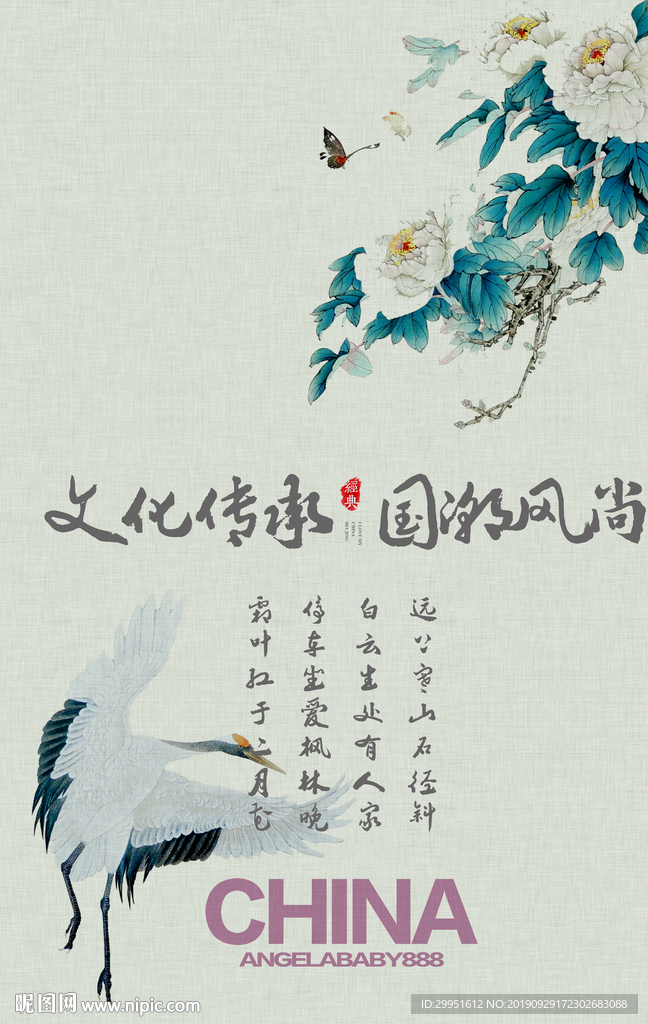 文化传承
經典
I LOVE MY
CHINA
BEI JING
国潮风尚
远上寒山石径斜
白云生处有人家
停车坐爱枫林晚
霜叶红于二月花
CHINA
ANGELABABY888
昵图网 www.nipic.com
ID:29951612 NO:20190929172302683088